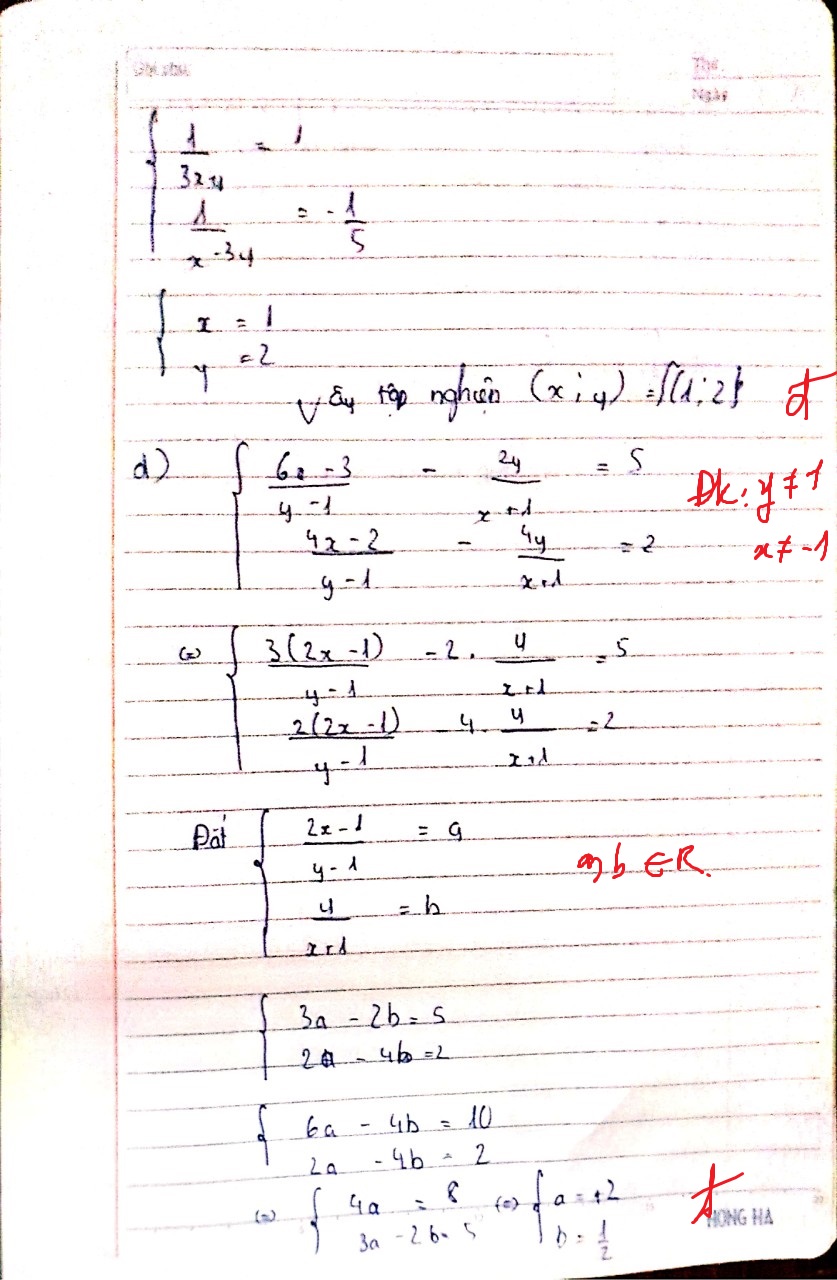 Thứ
Ngày
{ 1/(3x+y) = 1
1/(x-3y) = -1/5
{ x = 1
y = 2
Vậy tập nghiệm (x; y) = {(1; 2)} đ
d) { (6x-3)/(y-1) - 2y/(x+1) = 5 Đk: y ≠ 1
(4x-2)/(y-1) - 4y/(x+1) = 2 x ≠ -1
(=) { 3(2x-1)/(y-1) - 2 . y/(x+1) = 5
2(2x-1)/(y-1) - 4 . y/(x+1) = 2
Đặt { (2x-1)/(y-1) = a a, b ∈ R.
y/(x+1) = b
{ 3a - 2b = 5
2a - 4b = 2
{ 6a - 4b = 10
2a - 4b = 2
(=) { 4a = 8 (=) { a = +2
3a - 2b = 5 b = 1/2
HONG HA